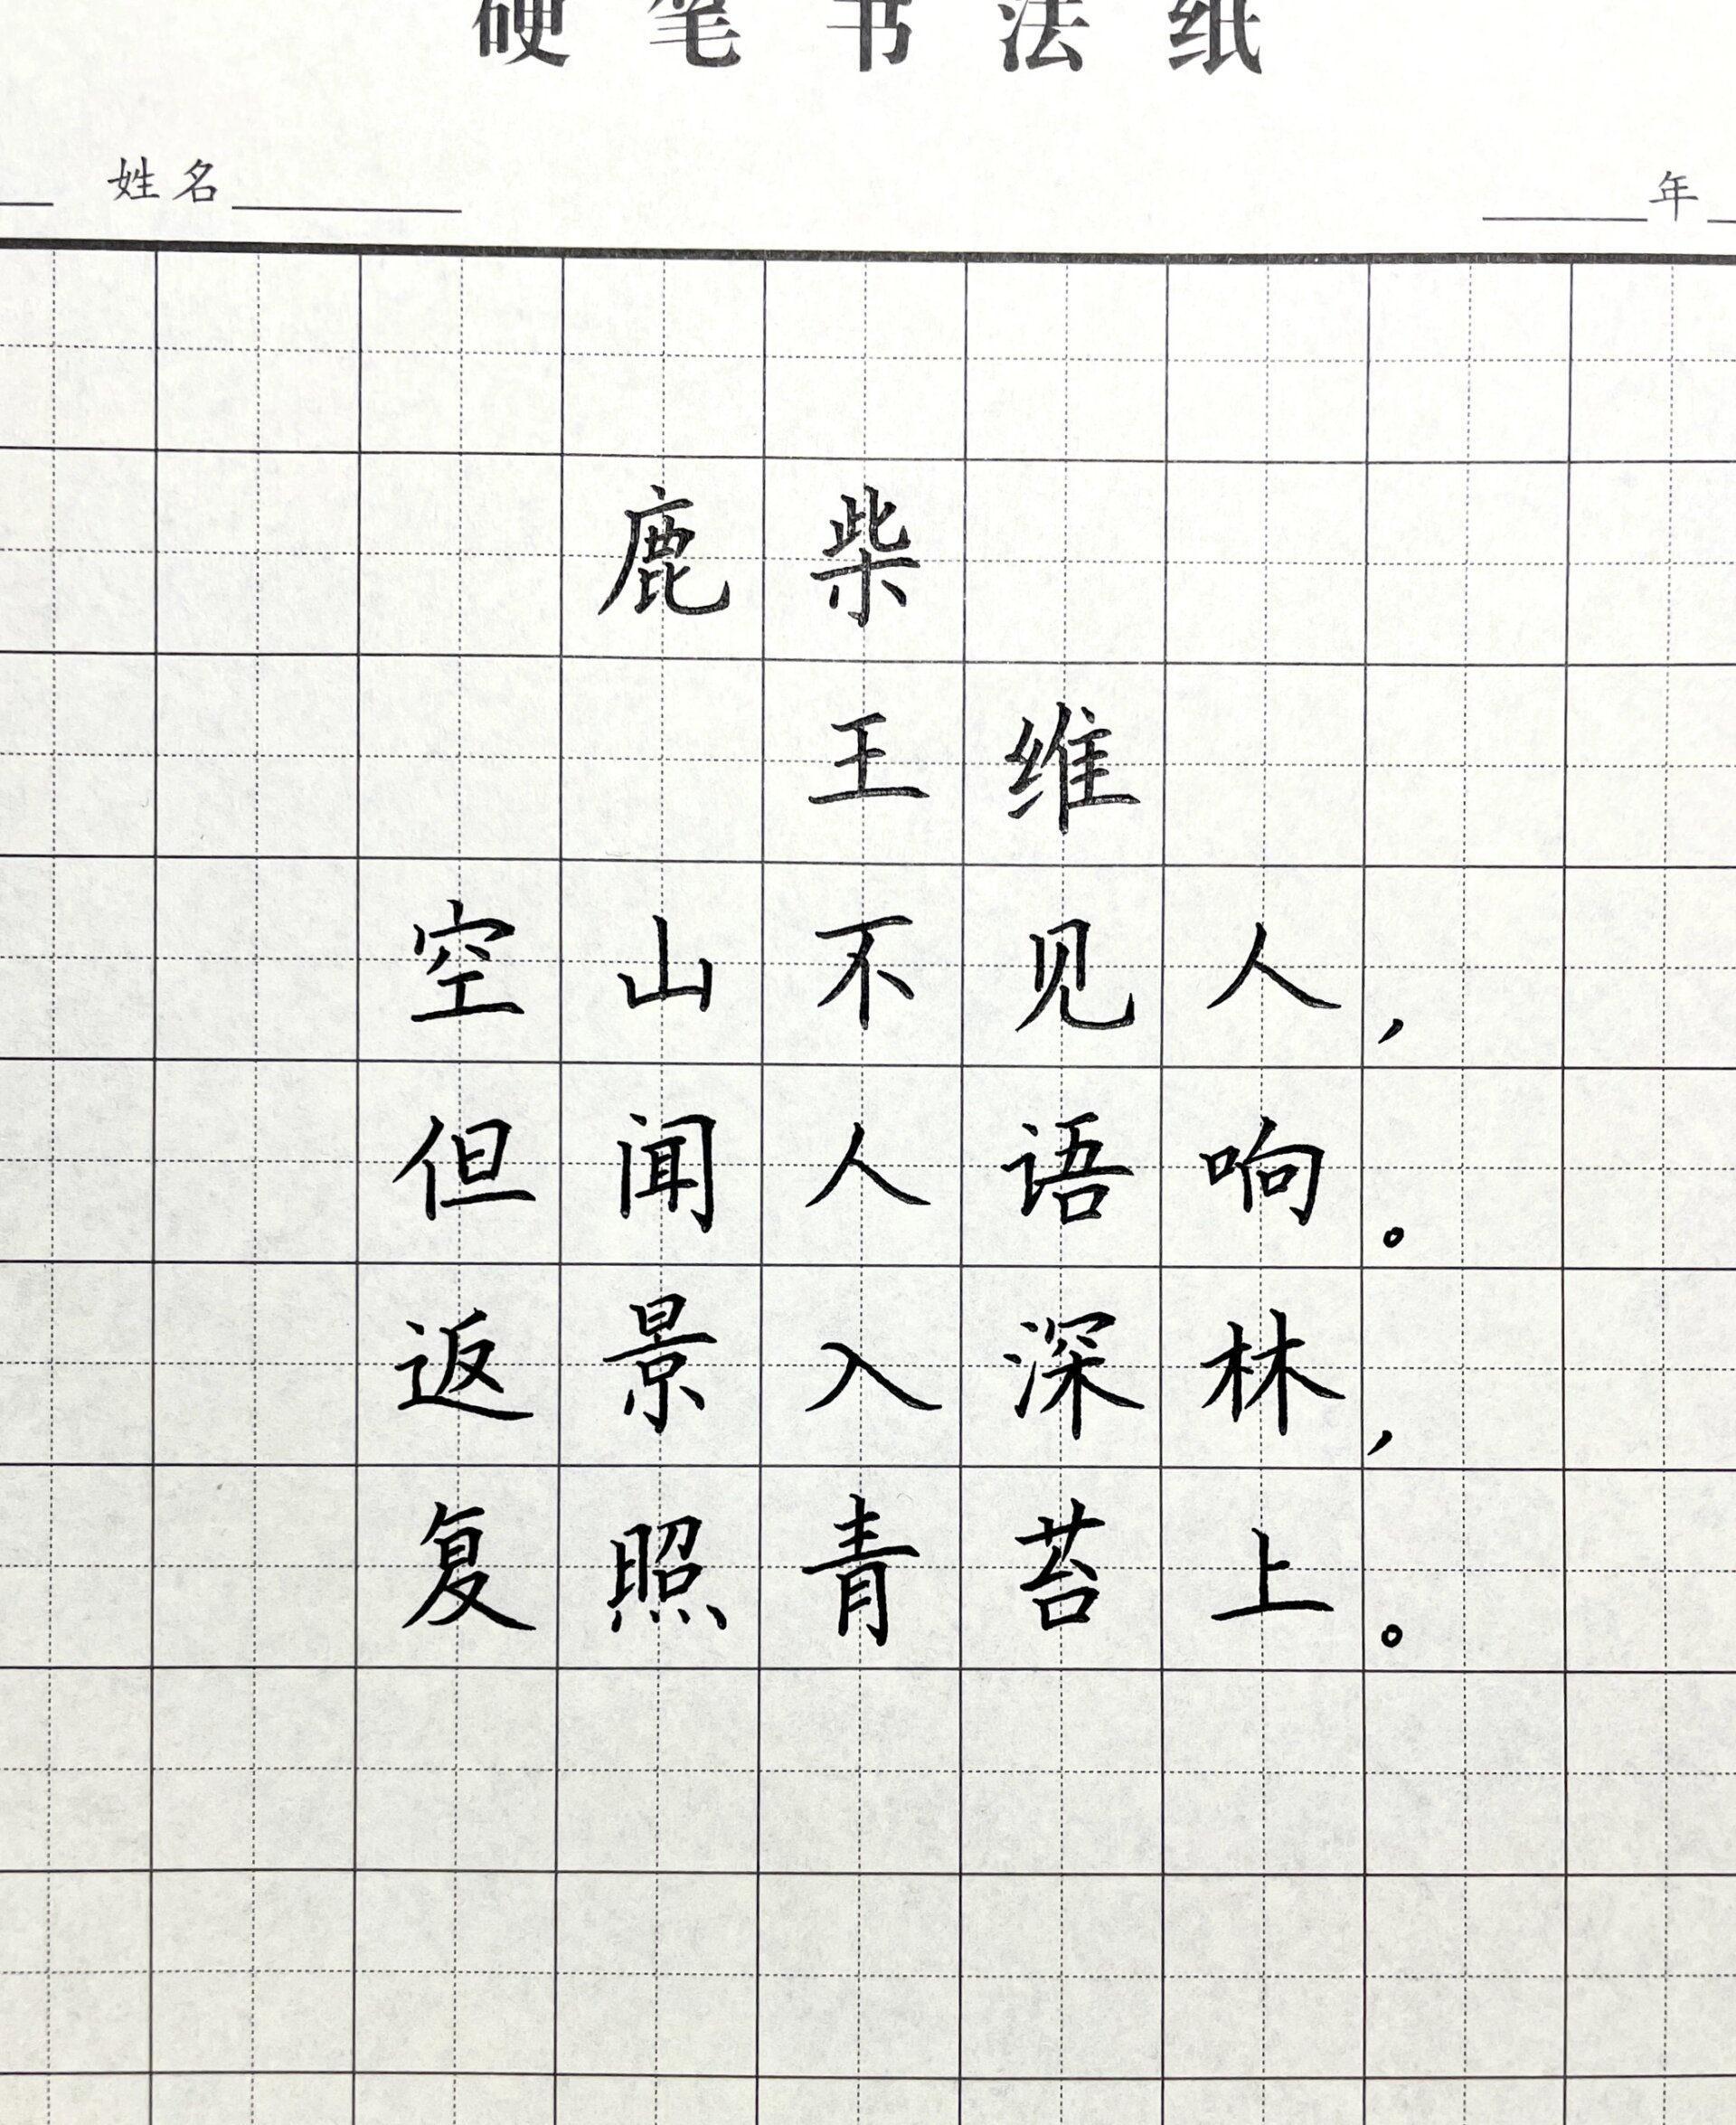 硬笔书法纸
姓名 年
鹿柴
王维
空山不见人，
但闻人语响。
返景入深林，
复照青苔上。